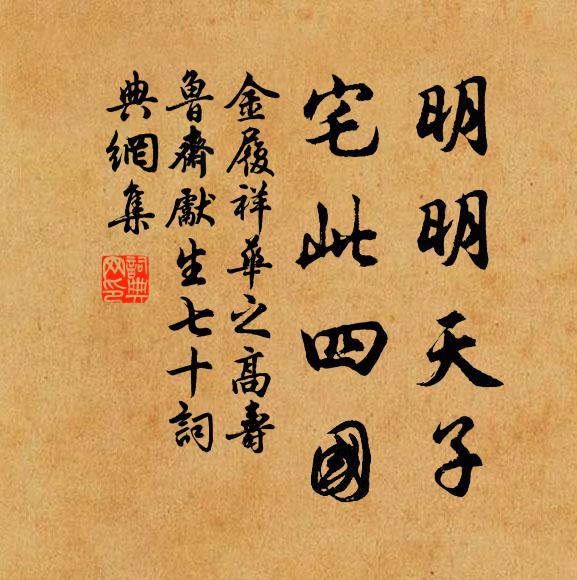 明明天子
宅此四國
金履祥華之高壽
魯齋獻生七十詞
典網集
詞典網印